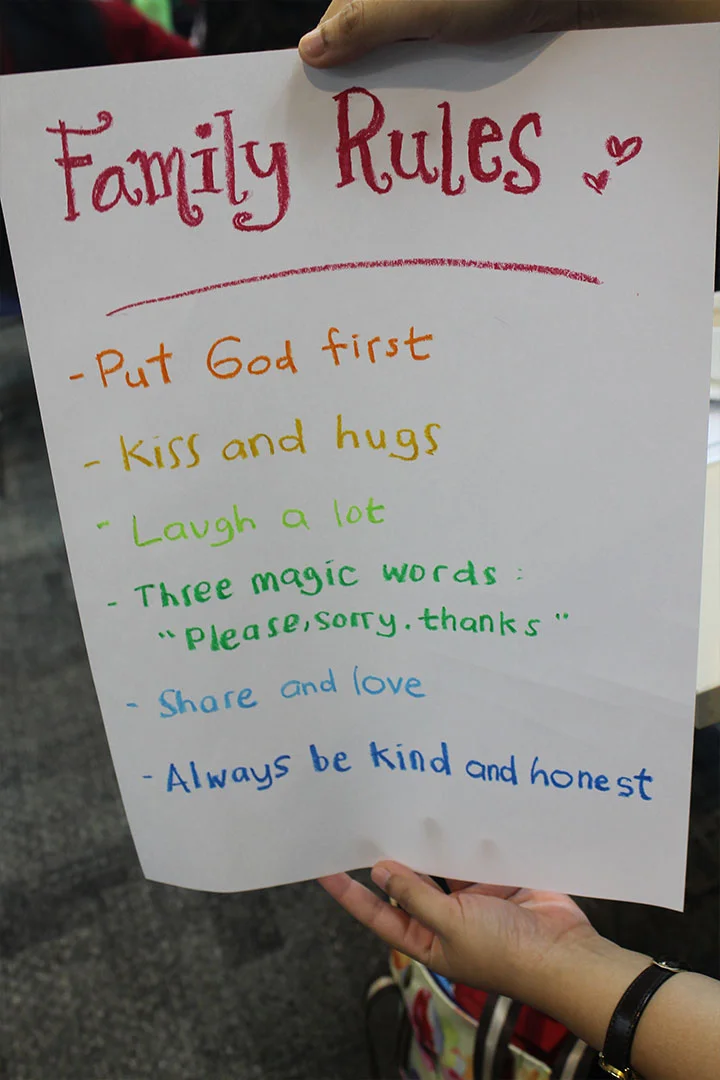 Family Rules
- Put God first
- Kiss and hugs
- Laugh a lot
- Three magic words :
"Please, sorry. thanks"
- Share and love
- Always be kind and honest